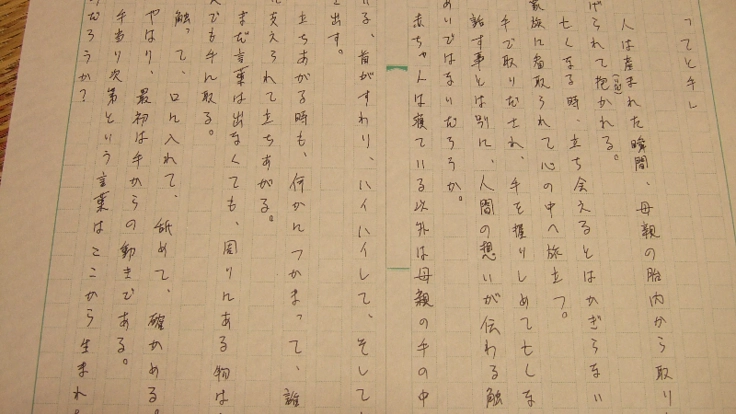 ってと手し
人は産まれた瞬間、母親の胎内から取り
げられて抱かれる。
亡くなる時、立ち会えるとはかぎらない
家族に看取られて心の中へ旅立つ。
手で取りだされ、手を握りしめて亡くな
話す事とは別に、人間の想いが伝わる触
あいではないだろうか。
赤ちゃんは寝ている以外は母親の手の中
いる、首がすわり、ハイハイして、そして
出す。
立ちあがる時も、何かにつかまって、誰
に支えられて立ちあがる。
まだ言葉は出なくても、周りにある物は
んでも手に取る。
触って、口に入れて、舐めて、確かめる。
やはり、最初は手からの動きである。
手当り次第という言葉はここから生まれ
だろうか?